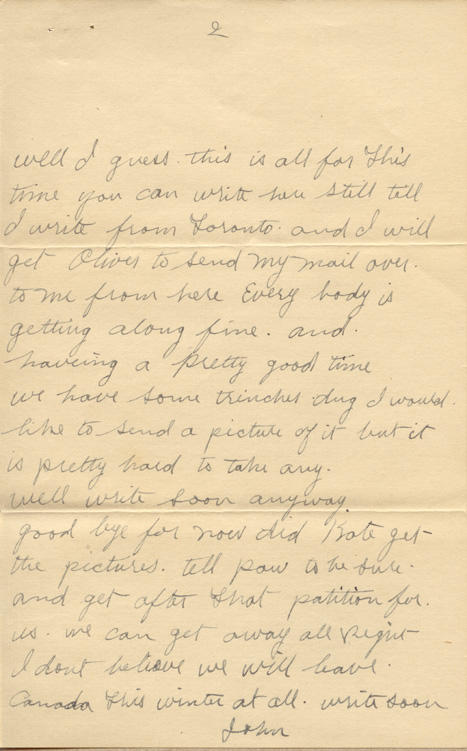 2
well I guess. this is all for this
time you can write here still till
I write from Toronto. and I will
get Oliver to send my mail over.
to me from here Every body is
getting along fine. and.
haveing a pretty good time
we have some trinches dug I would.
like to send a picture of it but it
is pretty hard to take any.
well write soon anyway.
good bye for now did Kate get
the pictures. tell paw to be sure.
and get after that patition for.
us. we can get away all right
I dont believe we will leave.
Canada this winter at all. write soon
John